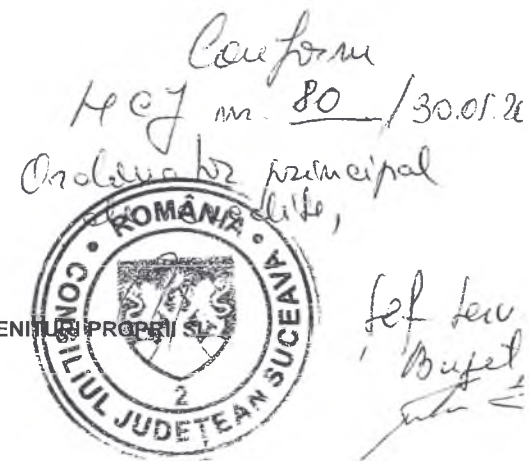 Conform
HCJ nr. 80 / 30.01.2
Ordonator principal
de credite,
ROMÂNIA
CONSILIUL JUDEȚEAN SUCEAVA
2
ENITURI PROPRII SI
Șef serv
Buget